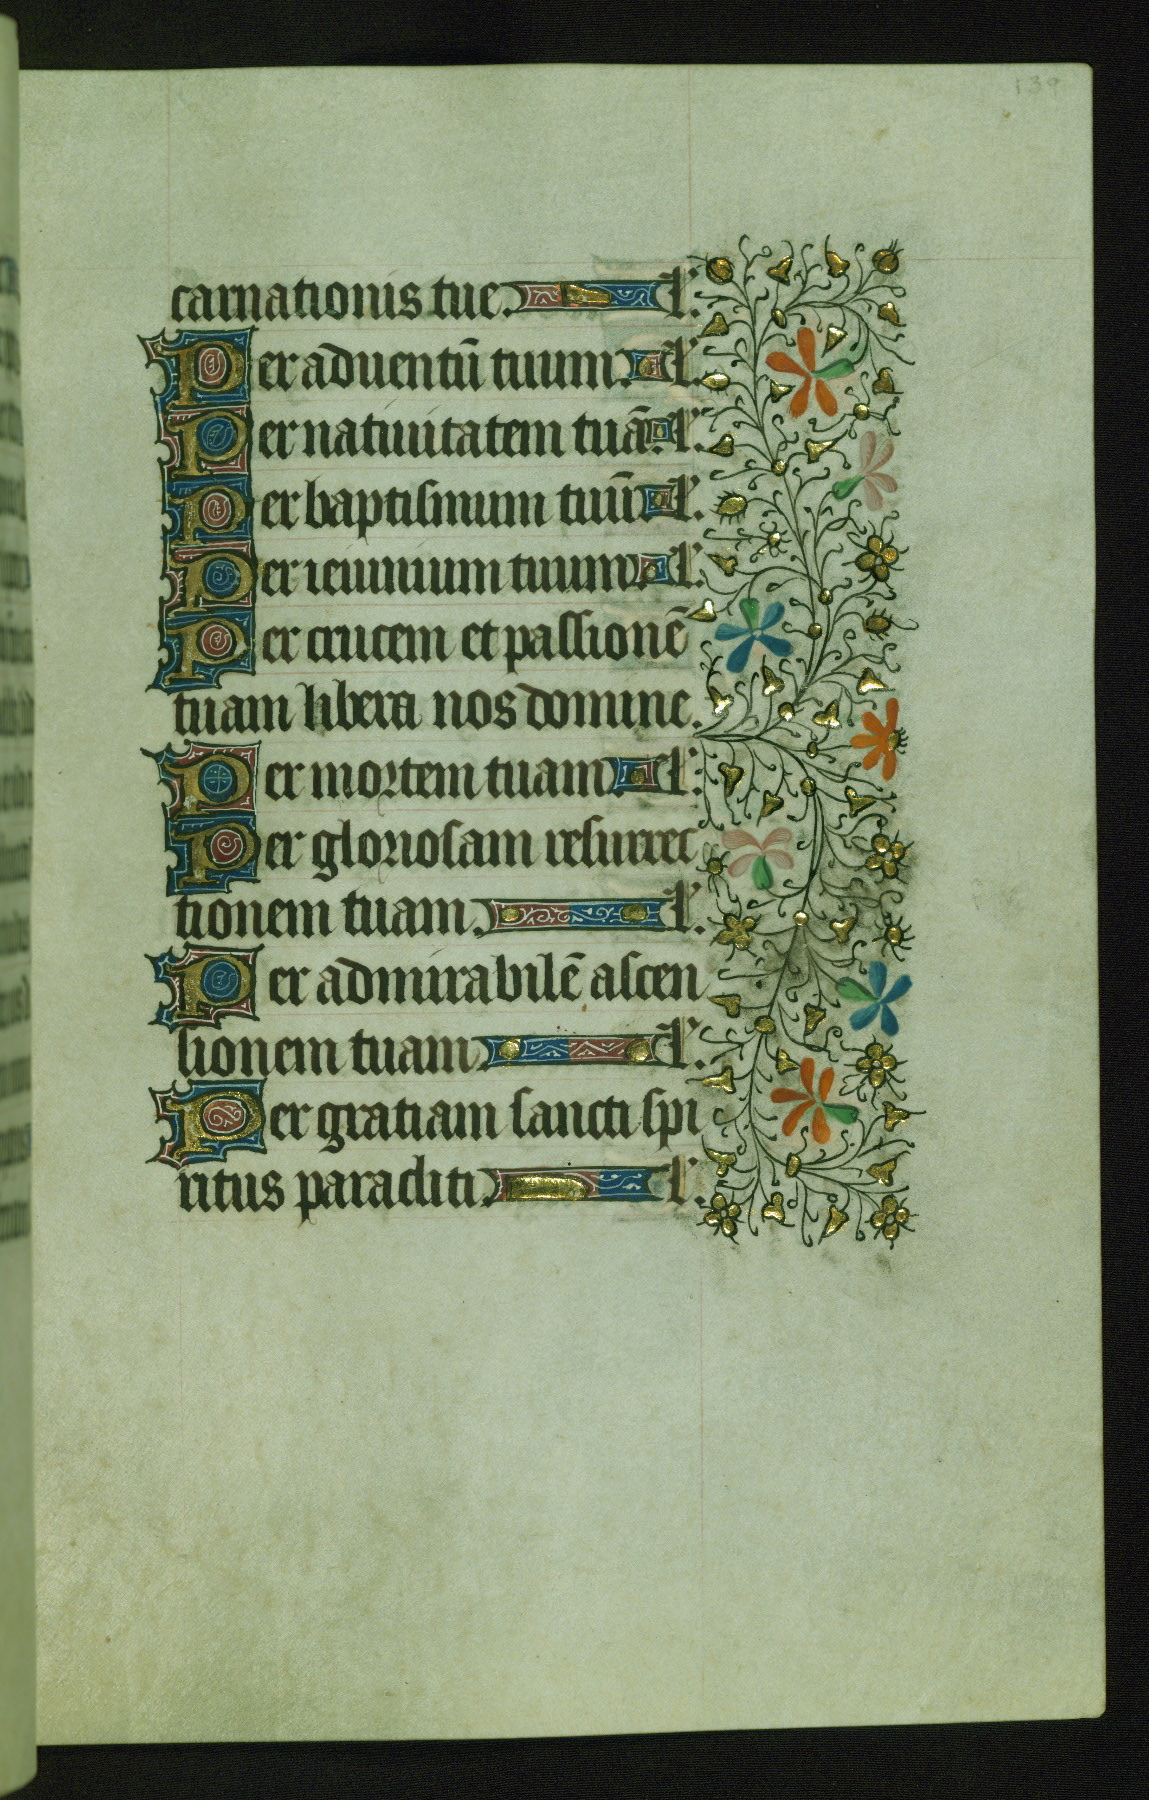 139
carnationis tue. L'.
Per aduentū tuum. L'.
Per natiuitatem tuā. L'.
Per baptismum tuū L'.
Per ieiunium tuum L'.
Per crucem et passionē
tuam libera nos domine.
Per mortem tuam L'.
Per gloriosam resurrec
tionem tuam. L'.
Per admirabilē ascen
sionem tuam L'.
Per gratiam sancti spi
ritus paracliti. L'.